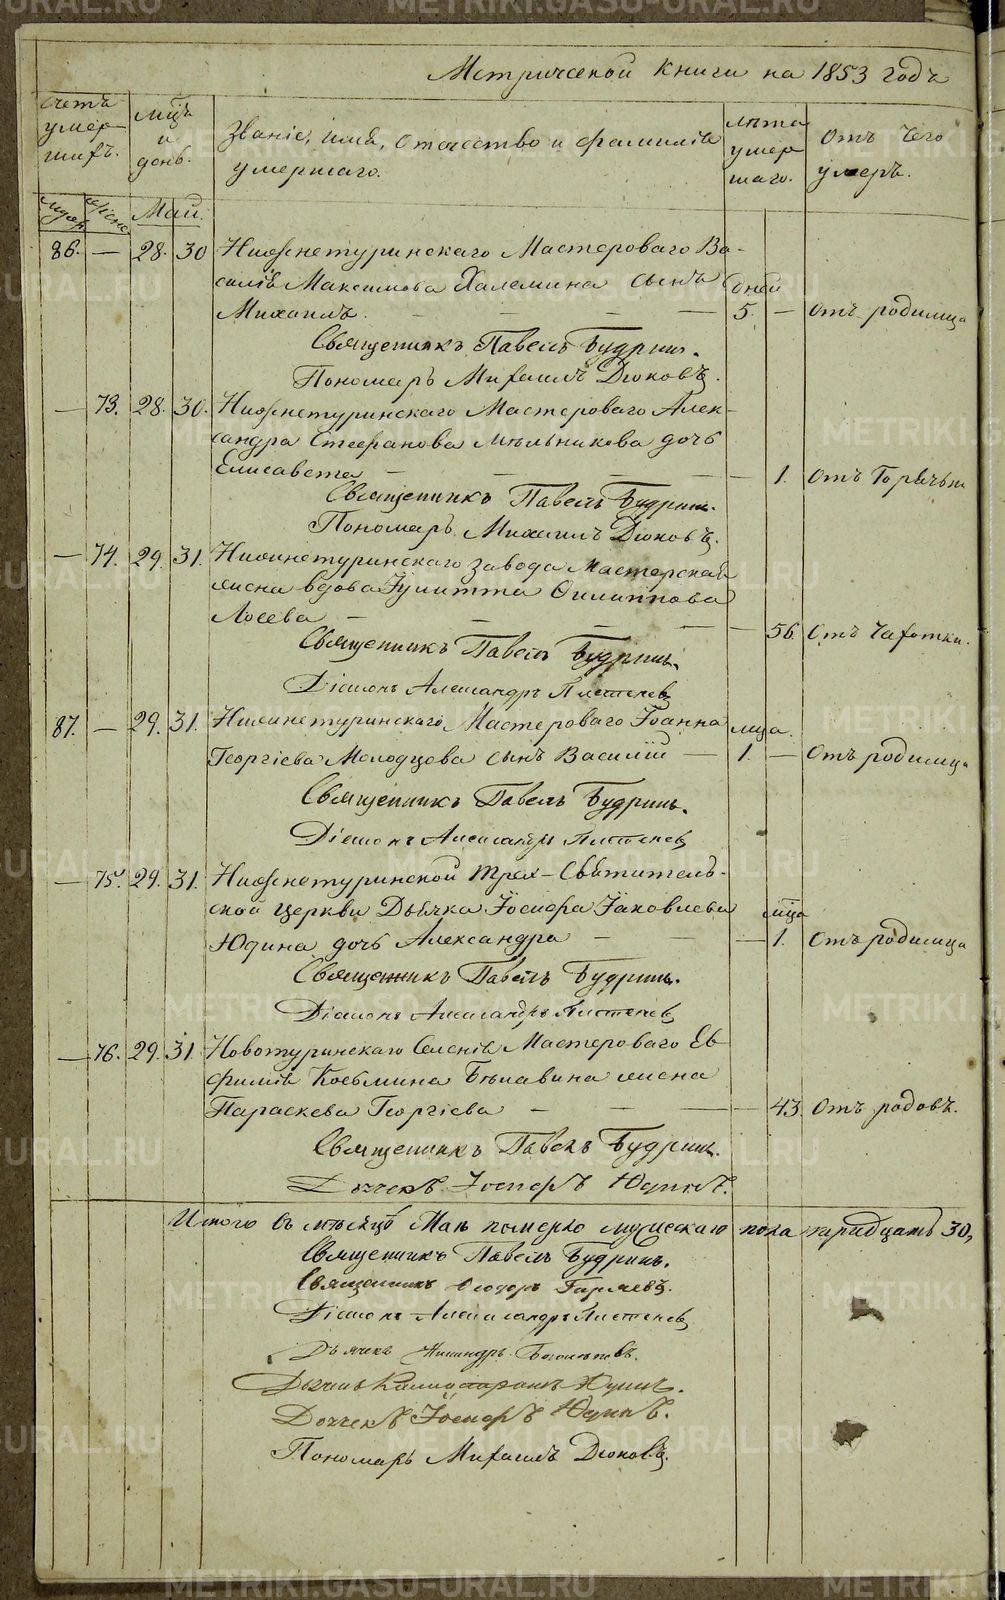 Метрической книги на 1853 годъ
Счетъ умер шихъ.
мца и день.
Званіе, имя, отчество и фамилія умершаго.
лѣта умер шаго.
Отъ чего умеръ.
Май.
86. — 28. 30 Нижнетуринскаго Мастероваго Ва-
силія Максимова Халемина сынъ дней
Михаилъ. — — — — 5. — Отъ родимца
Священникъ Павелъ Будринъ.
Пономарь Михаилъ Дюковъ.
— 73. 28. 30. Нижнетуринскаго Мастероваго Алек-
сандра Стефанова Мѣльникова дочь
Елисавета — — — — 1. Отъ Горячьки
Священникъ Павелъ Будринъ.
Пономарь Михаилъ Дюковъ.
— 74. 29. 31. Нижнетуринскаго завода Мастерская
жена вдова Іулитта Филиппова
Лосева — — — — 56. Отъ Чахотки.
Священникъ Павелъ Будринъ.
Діаконъ Александръ
87. — 29. 31. Нижнетуринскаго Мастероваго Іоанна мца.
Георгіева Молодцова сынъ Василій — 1. — Отъ родимца
Священникъ Павелъ Будринъ.
Діаконъ Александръ
— 75. 29. 31. Нижнетуринской Трех-Святитель-
ской церкви Дьячка Іосифа Іаковлева мца
Юдина дочь Александра — — 1. Отъ родимца
Священникъ Павелъ Будринъ.
Діаконъ Александръ
— 76. 29. 31. Новотуринскаго Селенія Мастероваго Ев-
фимія Козьмина Бѣлавина жена
Параскева Георгіева — — — 43. Отъ родовъ.
Священникъ Павелъ Будринъ.
Дьячекъ Іосифъ Юдинъ.
Итого въ мѣсяцѣ Маѣ померло мужескаго пола тридцать 30,
Священникъ Павелъ Будринъ.
Священникъ Ѳеодоръ
Діаконъ Александръ
Дьячекъ
Дьячекъ Юдинъ.
Дьячекъ Іосифъ Юдинъ.
Пономарь Михаилъ Дюковъ.
METRIKI.GASO-URAL.RU